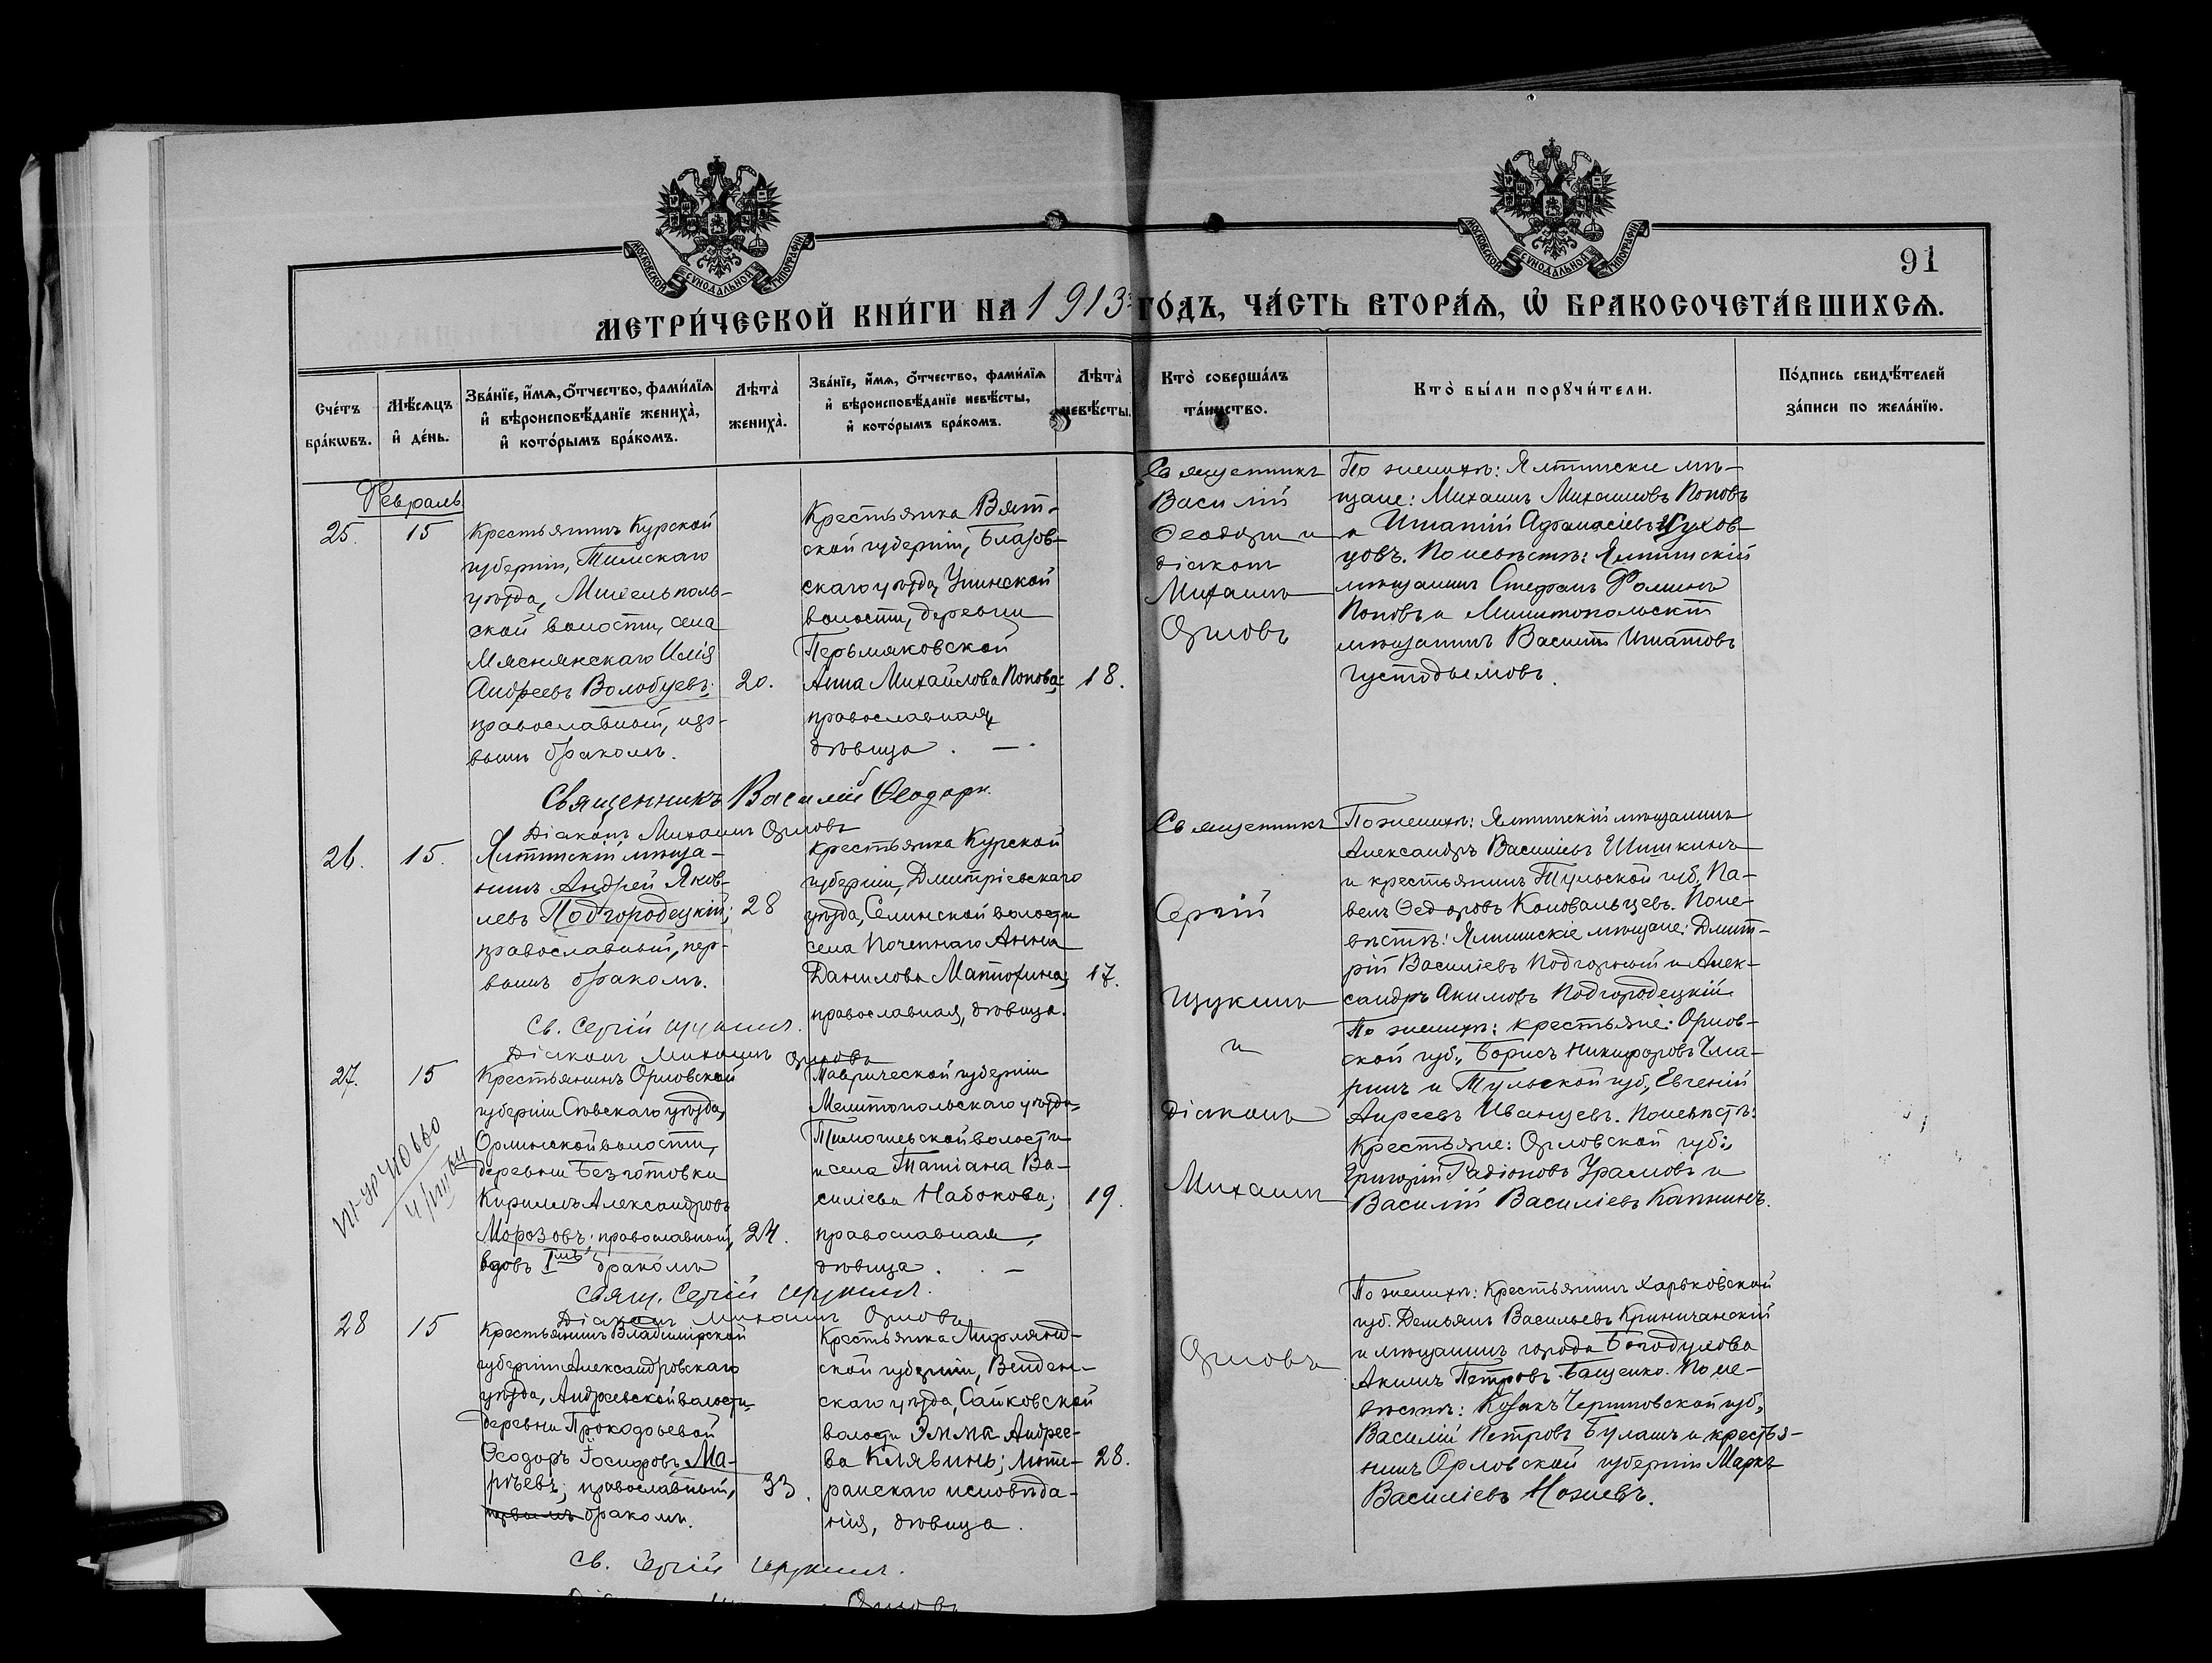 МОСКОВСКОЙ СѴНОДАЛЬНОЙ ТИПОГРАФІИ
МОСКОВСКОЙ СѴНОДАЛЬНОЙ ТИПОГРАФІИ
91
МЕТРИ́ЧЕСКОЙ КНИ́ГИ НА 1913 ГО́ДЪ, ЧА́СТЬ ВТОРА́Ѧ, Ѽ БРАКОСОЧЕТА́ВШИХСѦ.
Сче́тъ
бра́кѡвъ.
Мѣ́сяцъ
и҆ де́нь.
Зва́нїе, и҆́мѧ, ѻ҆́тчество, фами́лїѧ
и҆ вѣроисповѣ́данїе жениха̀,
и҆ кото́рымъ бра́комъ.
Лѣта̀
жениха̀.
Зва́нїе, и҆́мѧ, ѻ҆́тчество, фами́лїѧ
и҆ вѣроисповѣ́данїе невѣ́сты,
и҆ кото́рымъ бра́комъ.
Лѣта̀
невѣ́сты.
Кто̀ соверша́лъ
та́инство.
Кто̀ бы́ли порꙋчи́тели.
По́дпись свидѣ́телей
за́писи по жела́нїю.
Февраль
25.
15
Крестьянинъ Курской
губерніи, Тимскаго
уѣзда,
ской волости, села
Мяснянскаго Илія
Андреевъ Волобуевъ;
православный, пер-
вымъ бракомъ.
20.
Крестьянка Вят-
ской губерніи, Глазов-
скаго уѣзда, Унинской
волости, деревни
Перьмяковской
Анна Михайлова Попова;
православная,
дѣвица. —.
18.
Священникъ
Василій
Ѳеодори и
діаконъ
Михаилъ
Орловъ
По женихѣ: Ялтинскіе мѣ-
щане: Михаилъ Михаиловъ Поповъ
и Игнатій Афанасіевъ Сухов-
цовъ. По невѣстѣ: Ялтинскій
мѣщанинъ Стефанъ Фоминъ
Поповъ и Мелитопольскій
мѣщанинъ Василій Игнатовъ
Густодымовъ.
Священникъ Василій Ѳеодори.
Діаконъ Михаилъ Орловъ
26.
15.
Ялтинскій мѣща-
нинъ Андрей Яков-
левъ Подгородецкій;
православный, пер-
вымъ бракомъ.
28
Крестьянка Курской
губерніи, Дмитріевскаго
уѣзда, Селинской волости
села Почепнаго Анна
Данилова Матюхина;
православная, дѣвица.
17.
Священникъ
Сергій
Щукинъ
и
діаконъ
Михаилъ
Орловъ
По женихѣ: Ялтинскій мѣщанинъ
Александръ Василіевъ Шишкинъ
и крестьянинъ Тульской губ. Па-
велъ Ѳедоровъ Коновальцевъ. По не-
вѣстѣ: Ялтинскіе мѣщане: Дмит-
рій Василіевъ Подгорный и Алек-
сандръ Акимовъ Подгородецкій
Св. Сергій Щукинъ.
Діаконъ Михаилъ Орловъ
27.
15
Крестьянинъ Орловской
губерніи Сѣвскаго уѣзда,
Орлинской волости,
деревни Безготовки
Кириллъ Александровъ
Морозовъ; православный,
вдовъ I-мъ бракомъ
24.
Таврической губерніи
Мелитопольскаго уѣзда,
Тимошевской волости
и села Татіана Ва-
силіева Набокова;
православная,
дѣвица. . —
19.
По женихѣ: крестьяне: Орлов-
ской губ., Борисъ Никифоровъ Чма-
ринъ и Тульской губ., Евгеній
Анреевъ Иванцевъ. По невѣстѣ:
Крестьяне: Орловской губ.,
Григорій Радіоновъ Храмовъ и
Василій Василіевъ Капкинъ.
Свящ. Сергій Щукинъ.
Діаконъ Михаилъ Орловъ
28
15
Крестьянинъ Владимірской
губерніи Александровскаго
уѣзда, Андреевской волости,
деревни Прокофьевой
Ѳеодоръ Іосифовъ Ма-
рѣевъ; православный,
первымъ бракомъ.
33.
Крестьянка Лифлянд-
ской губерніи, Венден-
скаго уѣзда, Сайковской
волости Эмма Андрее-
ва Клявинь; люте-
ранскаго исповѣда-
нія, дѣвица.
28.
По женихѣ: Крестьянинъ Харьковской
губ. Демьянъ Васильевъ Криничанскій
и мѣщанинъ города Богодухова
Акимъ Петровъ Бащенко. По не-
вѣстѣ: Козакъ Черниговской губ.,
Василій Петровъ Булашъ и крестья-
нинъ Орловской губерніи Маркъ
Василіевъ Ножевъ.
Св. Сергій Щукинъ.
Орловъ